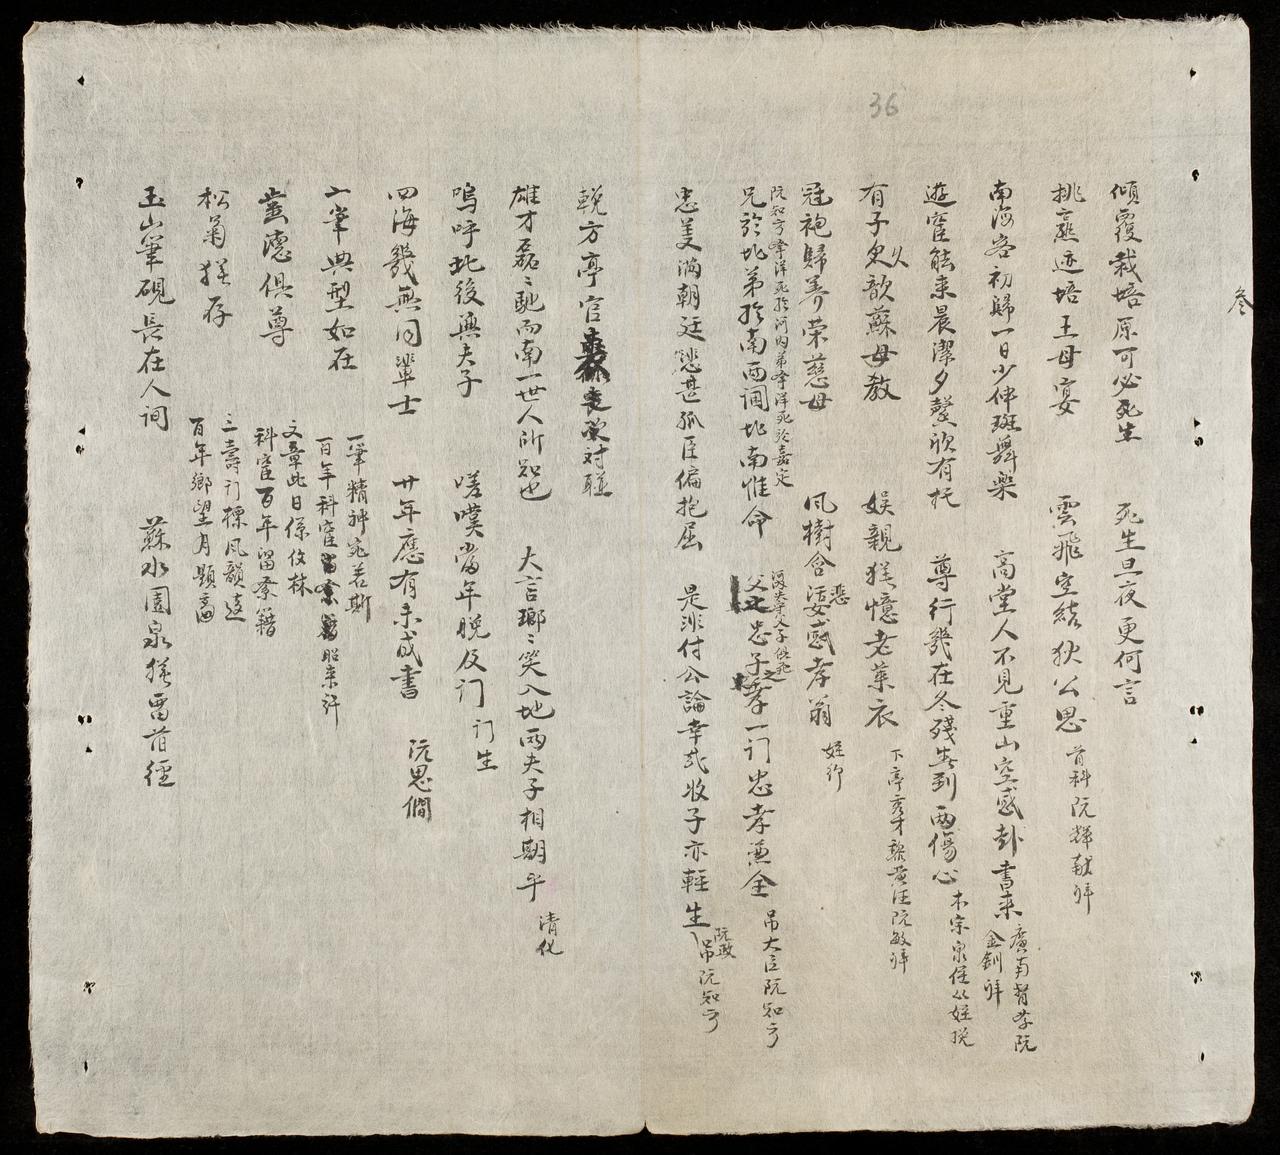 36
叁
傾覆栽培原可必死生 死生旦夜更何言
挑燕迹培王母宴 雲飛空結狄公思 首科阮輝 拜
南海客初歸一日少伸斑舞樂 高堂人不見重山空感訃書来 廣南督孝阮
金釧拜
遊宦能来晨潔夕馨欣有托 尊行幾在冬殘春到兩傷心 本宗泉侄 姪挽
有子久歆蘇母教 娱親猶憶老萊衣 下亭秀才黎黄汪阮敏拜
冠袍歸养荣慈母 風樹含悲感孝翁 姪行
阮知方 洋死於河内弟 洋死於嘉定
兄於北弟於南西調北南惟命 父忠子孝一门忠孝兼全 吊大臣阮知方
父子俱死
忠美满朝廷悲甚孤臣偏抱屈 是非付公論幸哉收子亦輕生 阮政
吊阮知方
輓方亭官 対聯
雄才磊〻馳而南一世人所知也 大言瑯〻笑入地兩夫子相期乎 清化
嗚呼北後無夫子 嗟嘆當年晚及门 门生
四海幾無同輩士 廿年應有未成書 阮思僩
一筆典型如在 一筆精神宛若斯
百年科宦 昭来許
齒德俱尊 文章此日係 林
科宦百年留 籍
松菊猶存 三壽门標風韻遠
百年鄉望月題高
玉山筆硯長在人间 蘇水園泉猶留首徑